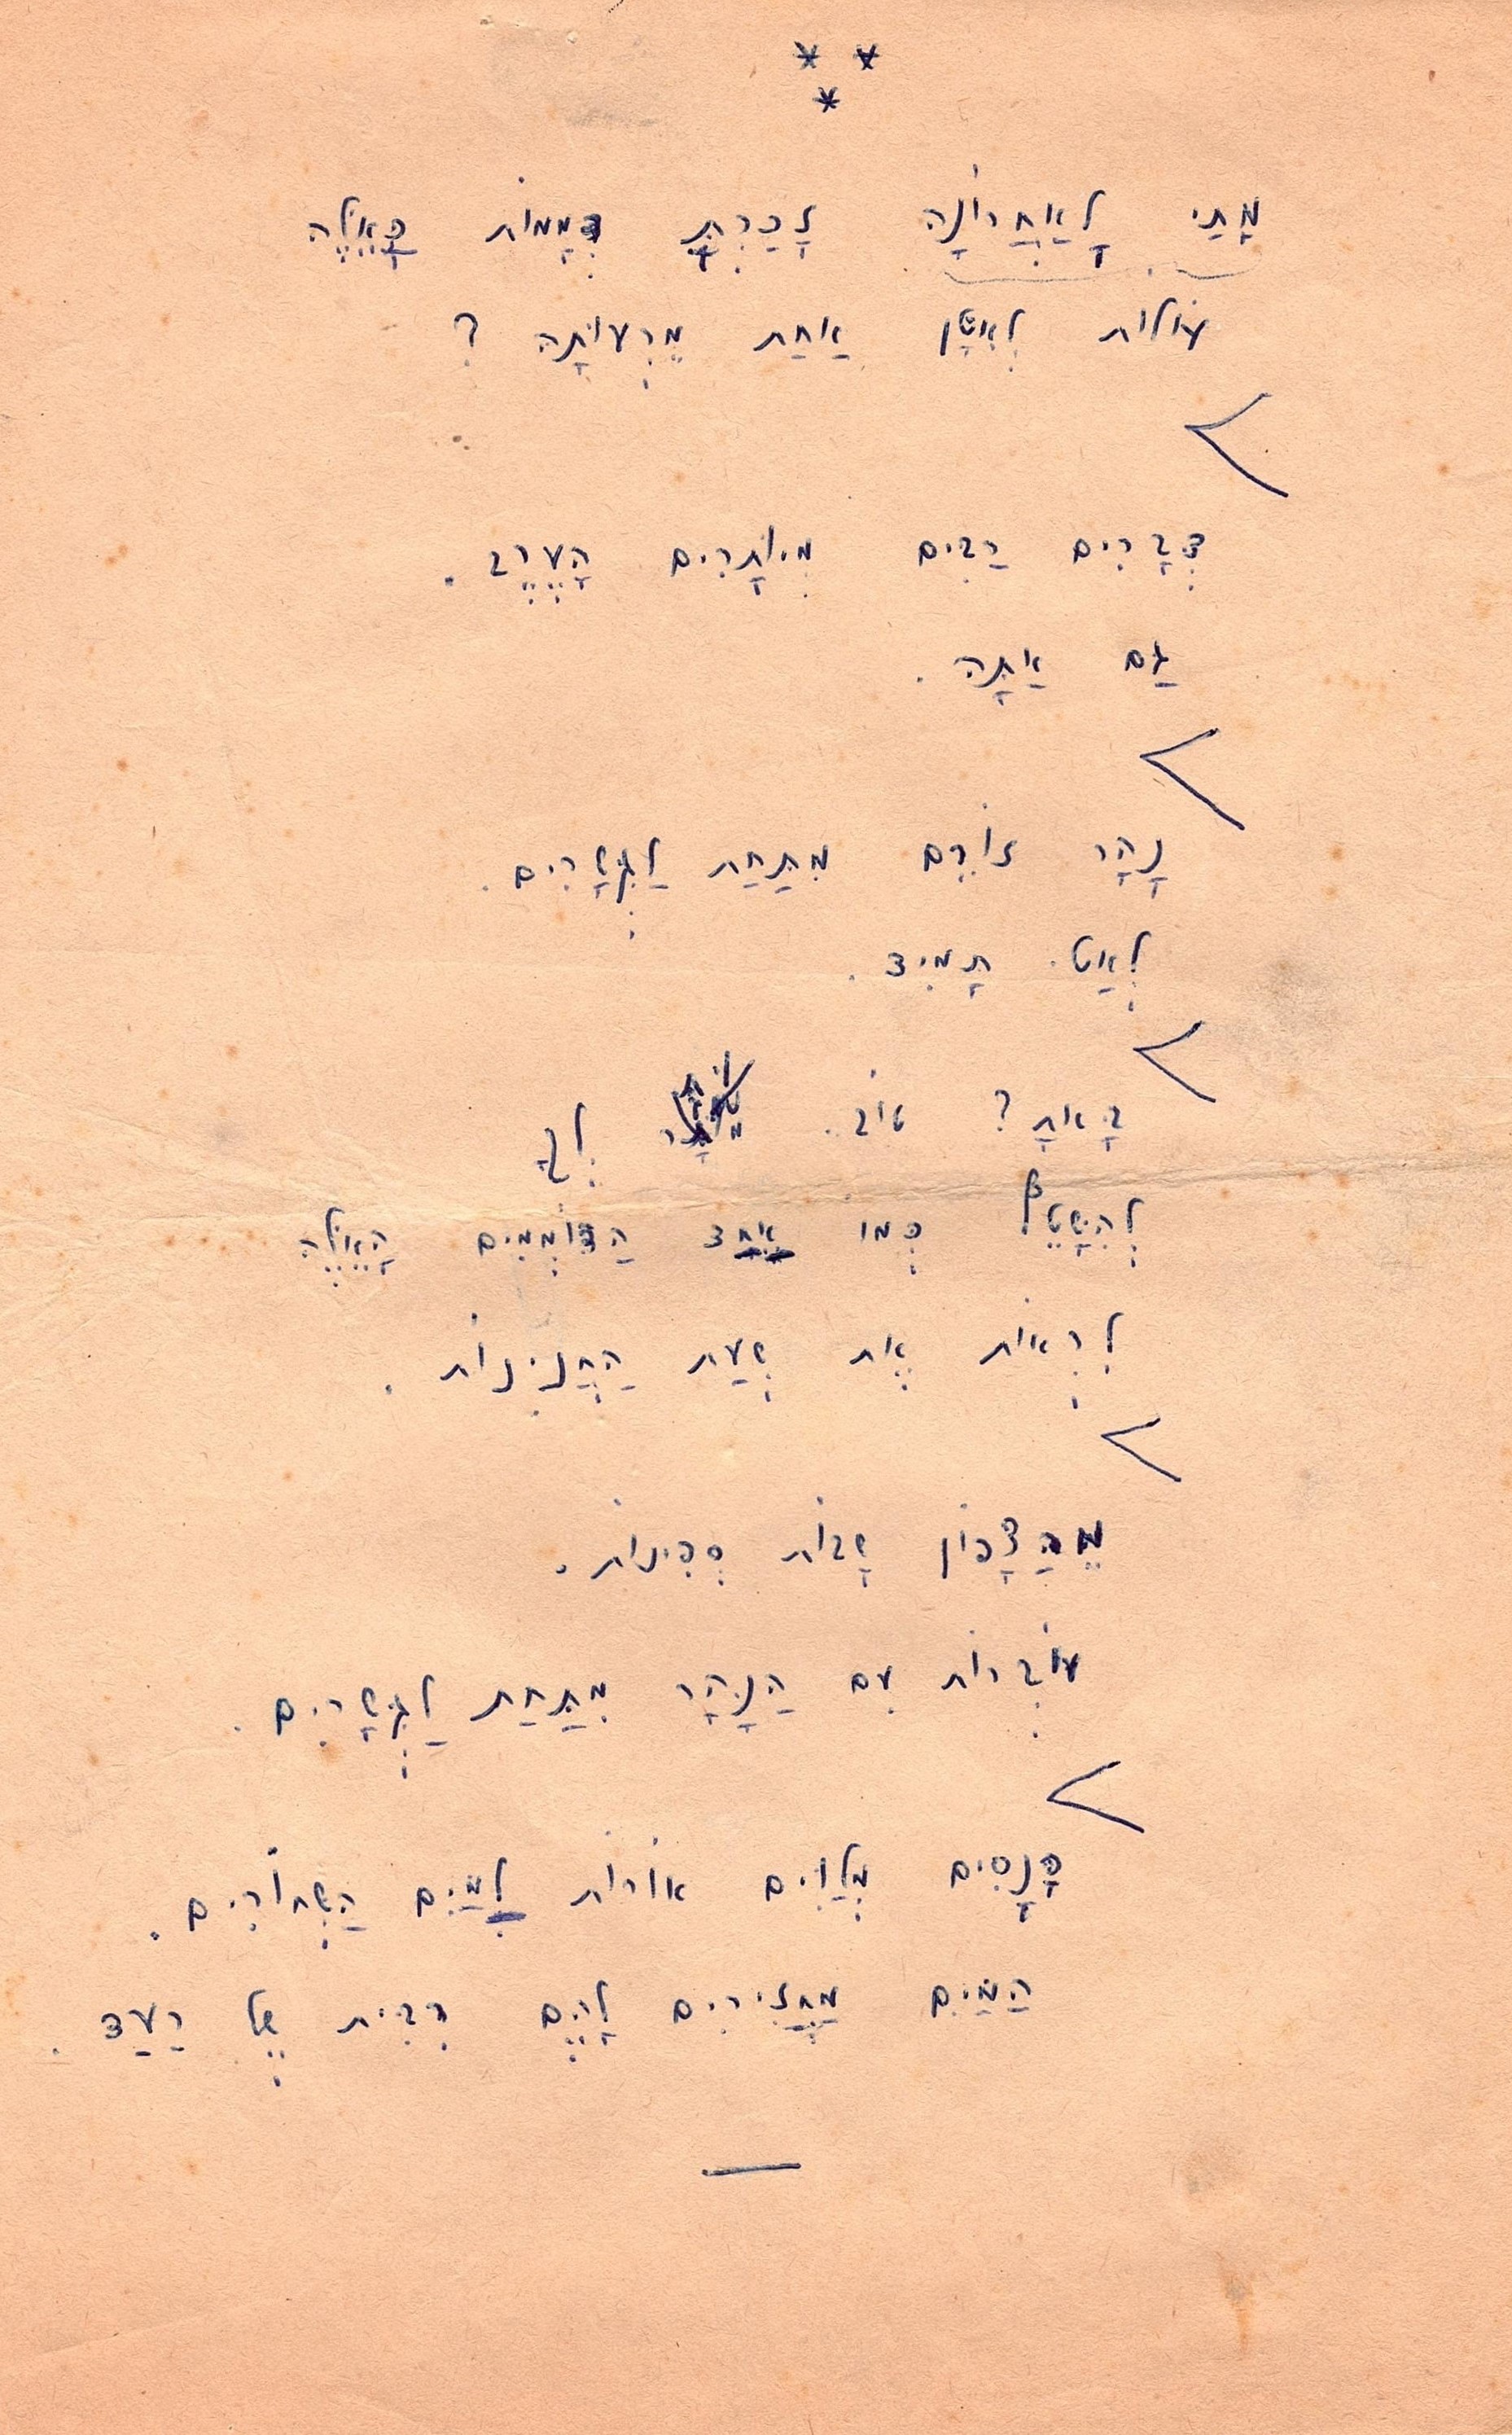 * *
*
מָתַי לָאַחֲרוֹנָה זָכַרְתָּ דְּמָמוֹת כָּאֵלֶּה
עוֹלוֹת לְאִטָּן אַחַת מֵרְעוּתָהּ ?
דְּבָרִים רַבִּים מְיוּתָּרִים הָעֶרֶב .
גַּם אַתָּה .
נָהָר זוֹרֵם מִתַּחַת לַגְּשָׁרִים .
לְאַט . תָּמִיד .
בָּאתָ ? טוֹב . מֻתָּר לְךָ
לְהִשָּׁעֵן כְּמוֹ אַחַד הַדּוֹמְמִים הָאֵלֶּה
לִרְאוֹת אֶת שְׁעַת הַחֲנִינוֹת .
מֵהַצָּפוֹן שָׁבוֹת סְפִינוֹת .
עוֹבְרוֹת עִם הַנָּהָר מִתַּחַת לַגְּשָׁרִים .
פָּנָסִים מַלְוִים אוֹרוֹת לַמַּיִם הַשְּׁחוֹרִים .
הַמַּיִם מַחֲזִירִים לָהֶם רִבִּית שֶׁל רַעַד .